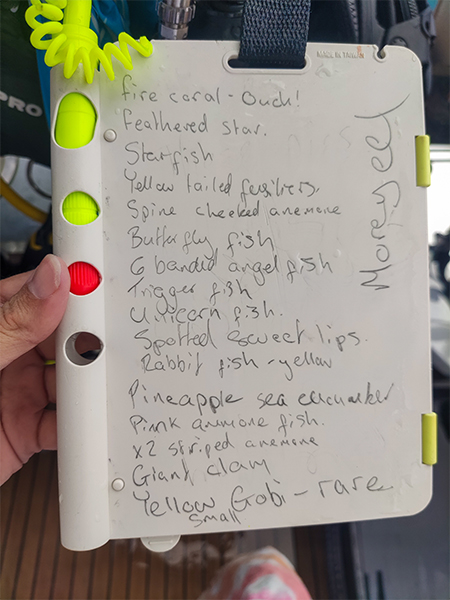 PRO
MADE IN TAIWAN
fire coral - Ouch!
Feathered Star.
Starfish
Yellow tailed fusiliers.
Spine cheeked anemone
Butterfly fish
6 banded angel fish
Trigger fish
Unicorn fish.
Spotted sweet lips.
Rabbit fish - yellow
Pineapple sea cucumber
Pink anemone fish.
x2 striped anemone
Giant clam
Yellow Gobi - rare
small
Moreyeel